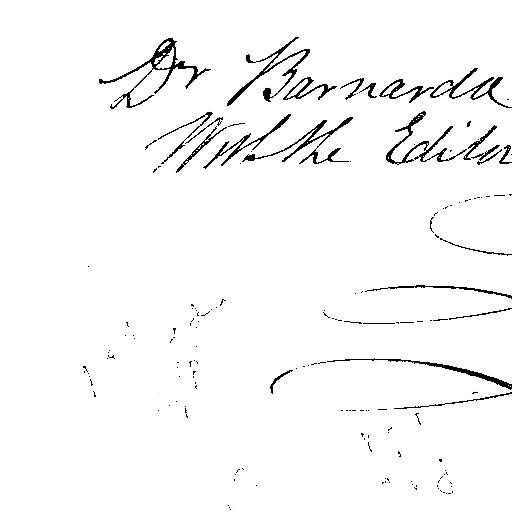 Dr Barnarda
With the Editor